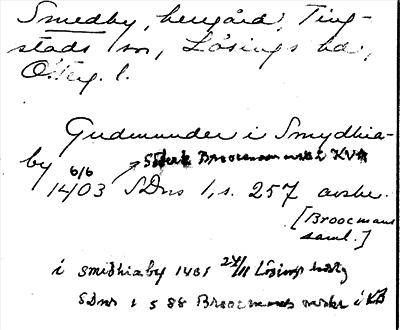 Smedby, herrgård, Ting-
stads sn, Lösings hd,
Österg. l.
Gudmunder i Smydhia-
by 6/6 1403 SDns 1, s. 257 avskr.
Broocmans KVA
[Broocmans
saml.]
i smidhiaby 1401 27/11 Lösings hdtg
SDns 1 s 88 Broocmans i KB